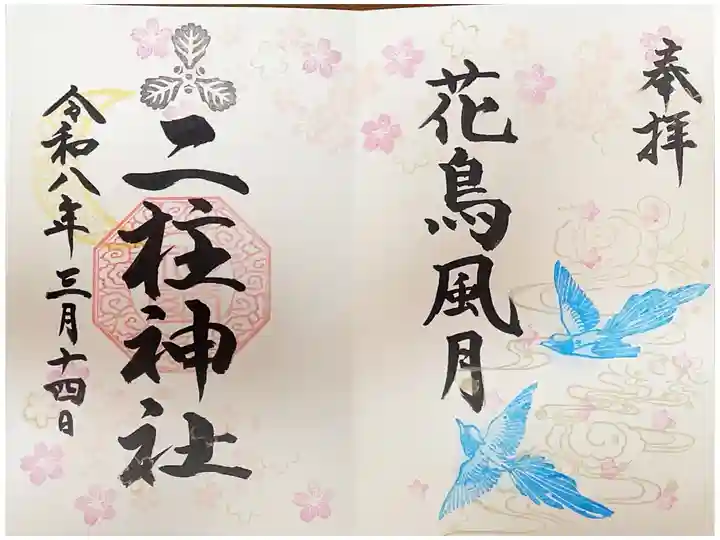 奉拝
花鳥風月
二柱神社
令和八年三月十四日